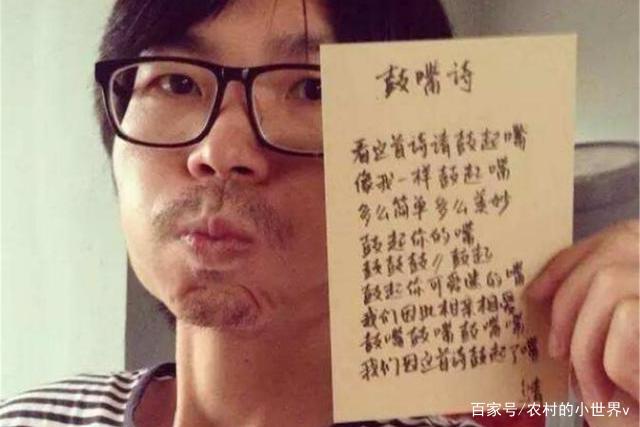 鼓嘴诗
看这首诗请鼓起嘴
像我一样鼓起嘴
多么简单多么美妙
鼓起你的嘴
鼓鼓鼓//鼓起
鼓起你可爱迷的嘴
我们因此相亲相爱
鼓嘴鼓嘴鼓嘴嘴
我们因这首诗鼓起了嘴
百家号/农村的小世界v